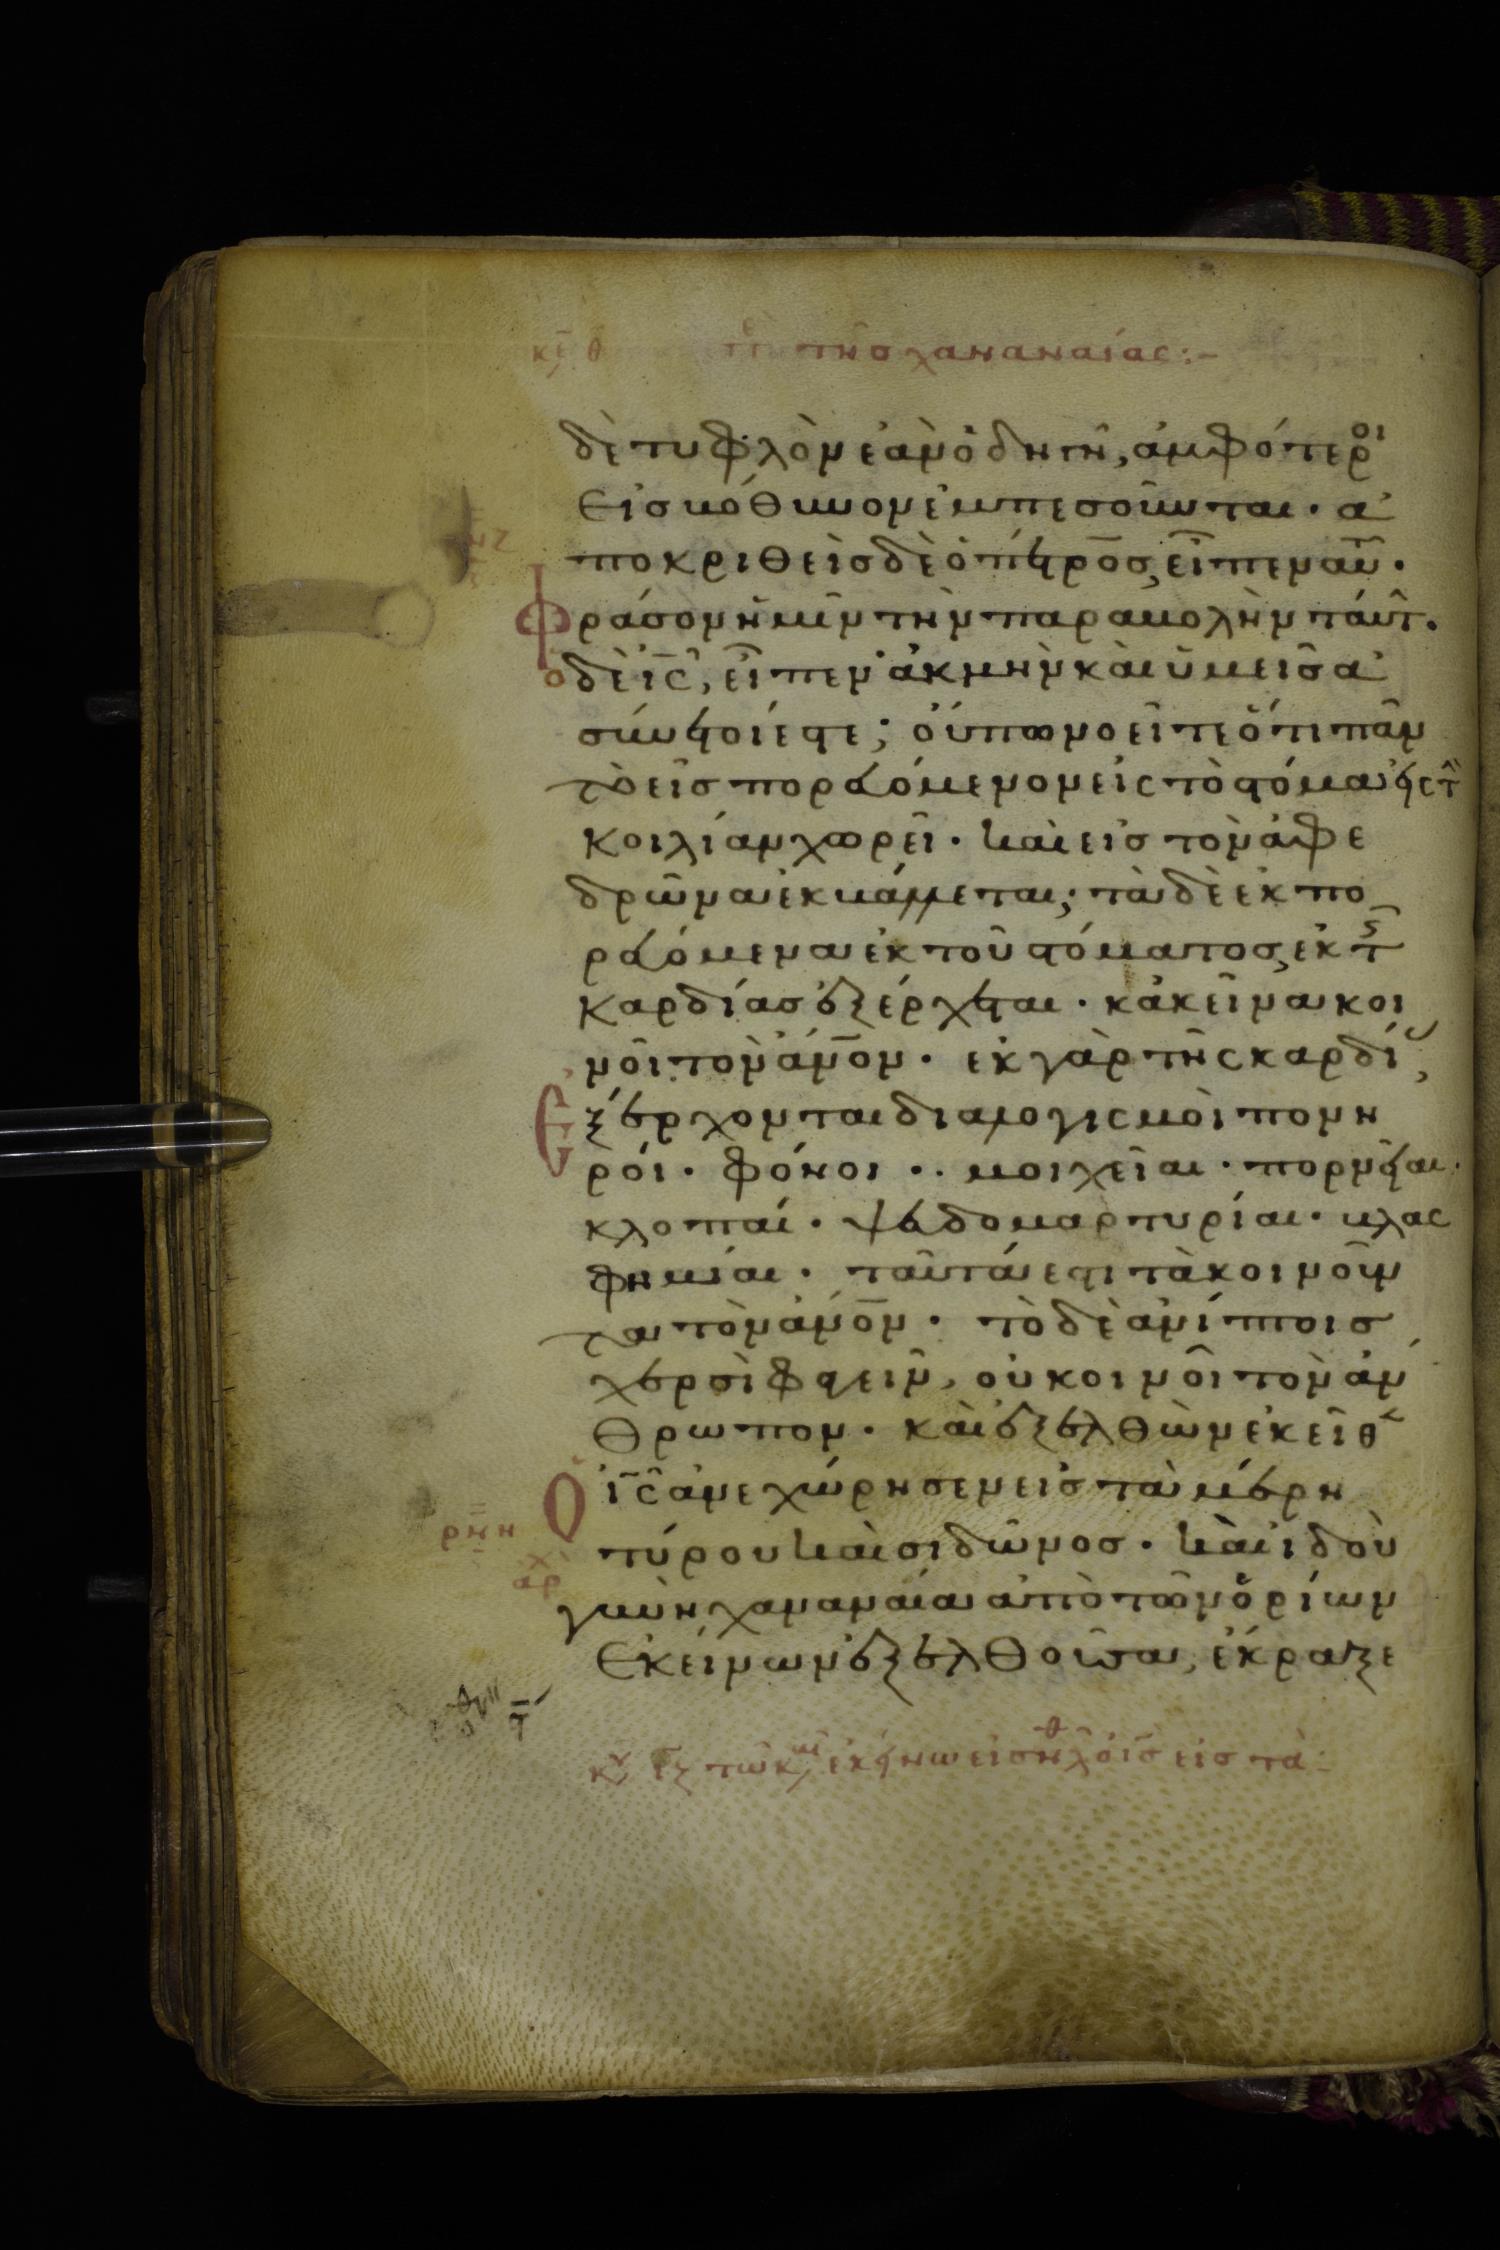 τῆς χαναναίας:-
δὲ τυφλὸν ἐὰν ὁδηγῆ, ἀμφότεροι
εἰς βόθυνον ἐμπεσοῦνται· ἀ
ποκριθεὶς δὲ ὁ πέτρος, εἶπεν αὐτ·
φράσον ἡμῖν τὴν παραβολὴν ταύτ·
ὁ δὲ ις, εἶπεν· ἀκμὴν καὶ ὑμεῖς ἀ
σύνετοί ἐστε; οὔπω νοεῖτε ὅτι πᾶν
τὸ εἰσπορευόμενον εἰς τὸ στόμα εἰς τ
κοιλίαν χωρεῖ· καὶ εἰς τὸν ἀφε
δρῶνα ἐκβάλλεται; τὰ δὲ ἐκπο
ρευόμενα ἐκ τοῦ στόματος, ἐκ τῆς
καρδίας ἐξέρχεται· κἀκεῖνα κοι
νοῖ τὸν ἀνον· ἐκ γὰρ τῆς καρδί,
ἐξέρχονται διαλογισμοὶ πονη
ροί· φόνοι·· μοιχεῖαι· πορνεῖαι·
κλοπαί· ψευδομαρτυρίαι· βλας
φημίαι· ταῦτά ἐστι τὰ κοινοῦν
τα τὸν ἀνον· τὸ δὲ ἀνίπτοις
χερσὶ φαγεῖν, οὐ κοινοῖ τὸν ἀν
θρωπον· καὶ ἐξελθὼν ἐκεῖθ
ὁ ις ἀνεχώρησεν εἰς τὰ μέρη
ρνη
τύρου καὶ σιδῶνος· καὶ ἰδοὺ
ἀρχ
γυνὴ χαναναία ἀπὸ τῶν ὁρίων
ἐκείνων ἐξελθοῦσα, ἔκραξε
τῶ κ, ἐκείνω εἰσῆλθ ὁ ις εἰς τὰ: